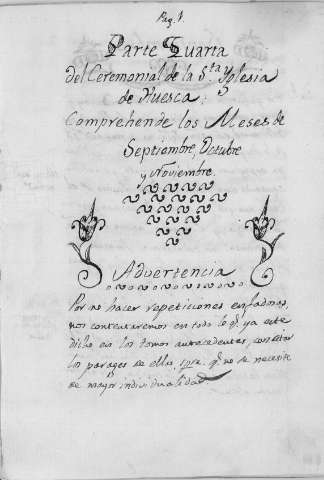 Pag. 1.
Parte Quarta
del Ceremonial de la S.ta Yglesia
de Huesca:
Comprehende los Meses de
Septiembre, Octubre
y Noviembre.
Advertencia
Por no hacer repeticiones enfadosas,
nos contentaremos en todo lo q.e ya este
dicho en los tomos antecedentes, con citar
los parages de ellos, q.e no se necesite
de mayor individualidad